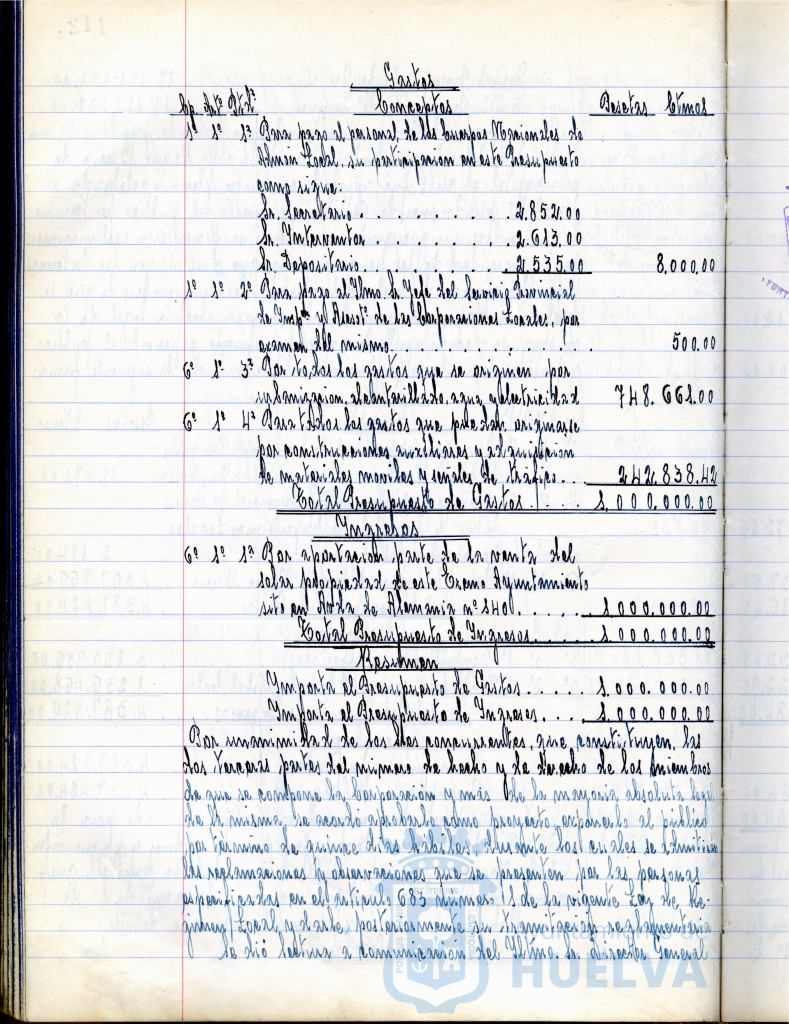 Gastos
Cp. Artº Ptdª Conceptos Pesetas Ctmos
1º 1º 1ª Para pago al personal de los Cuerpos Nacionales de
Admón Local, su participacion en este Presupuesto
como sigue:
Sr. Secretario . . . . . . . . . . 2.852.00
Sr. Interventor . . . . . . . . . 2.613.00
Sr. Depositario . . . . . . . . . 2.535.00 8.000.00
1º 1º 2ª Para pago al Ilmo. Sr. Jefe del Servicio Provincial
de Insp. y Asesotº de las Corporaciones Locales, por
examen del mismo . . . . . . . . . . 500.00
6º 1º 3ª Por todos los gastos que se originen por
urbanizacion, alcantarillado, agua y electricidad 748.661.00
6º 1º 4ª Para todos los gastos que puedan originarse
por construcciones auxiliares y adquisicion
de materiales moviles y señales de tráfico . . 242.838.42
Total Presupuesto de Gastos . . . . 1.000.000.00
Ingresos
6º 1º 1ª Por aportacion parte de la venta del
solar propiedad de este Excmo Ayuntamiento
sito en Avda de Alemania nº 140 . . . . . 1.000.000.00
Total Presupuesto de Ingresos . . . . . 1.000.000.00
Resumen
Importa el Presupuesto de Gastos . . . . 1.000.000.00
Importa el Presupuesto de Ingresos . . . 1.000.000.00
Por unanimidad de los Sres concurrentes, que constituyen, las
dos terceras partes del número de hecho y de derecho de los miembros
de que se compone la Corporación y más de la mayoria absoluta legal
de la misma, se acordó aprobarlo como proyecto, exponerlo al público
por término de quince dias hábiles, durante los cuales se admitirán
las reclamaciones y observaciones que se presenten por las personas
especificadas en el articulo 683 número 1 de la vigente Ley de Ré-
gimen Local, y darle posteriormente su tramitación reglamentaria
Se dió lectura a comunicacion del Iltmo. Sr. Director General
HUELVA